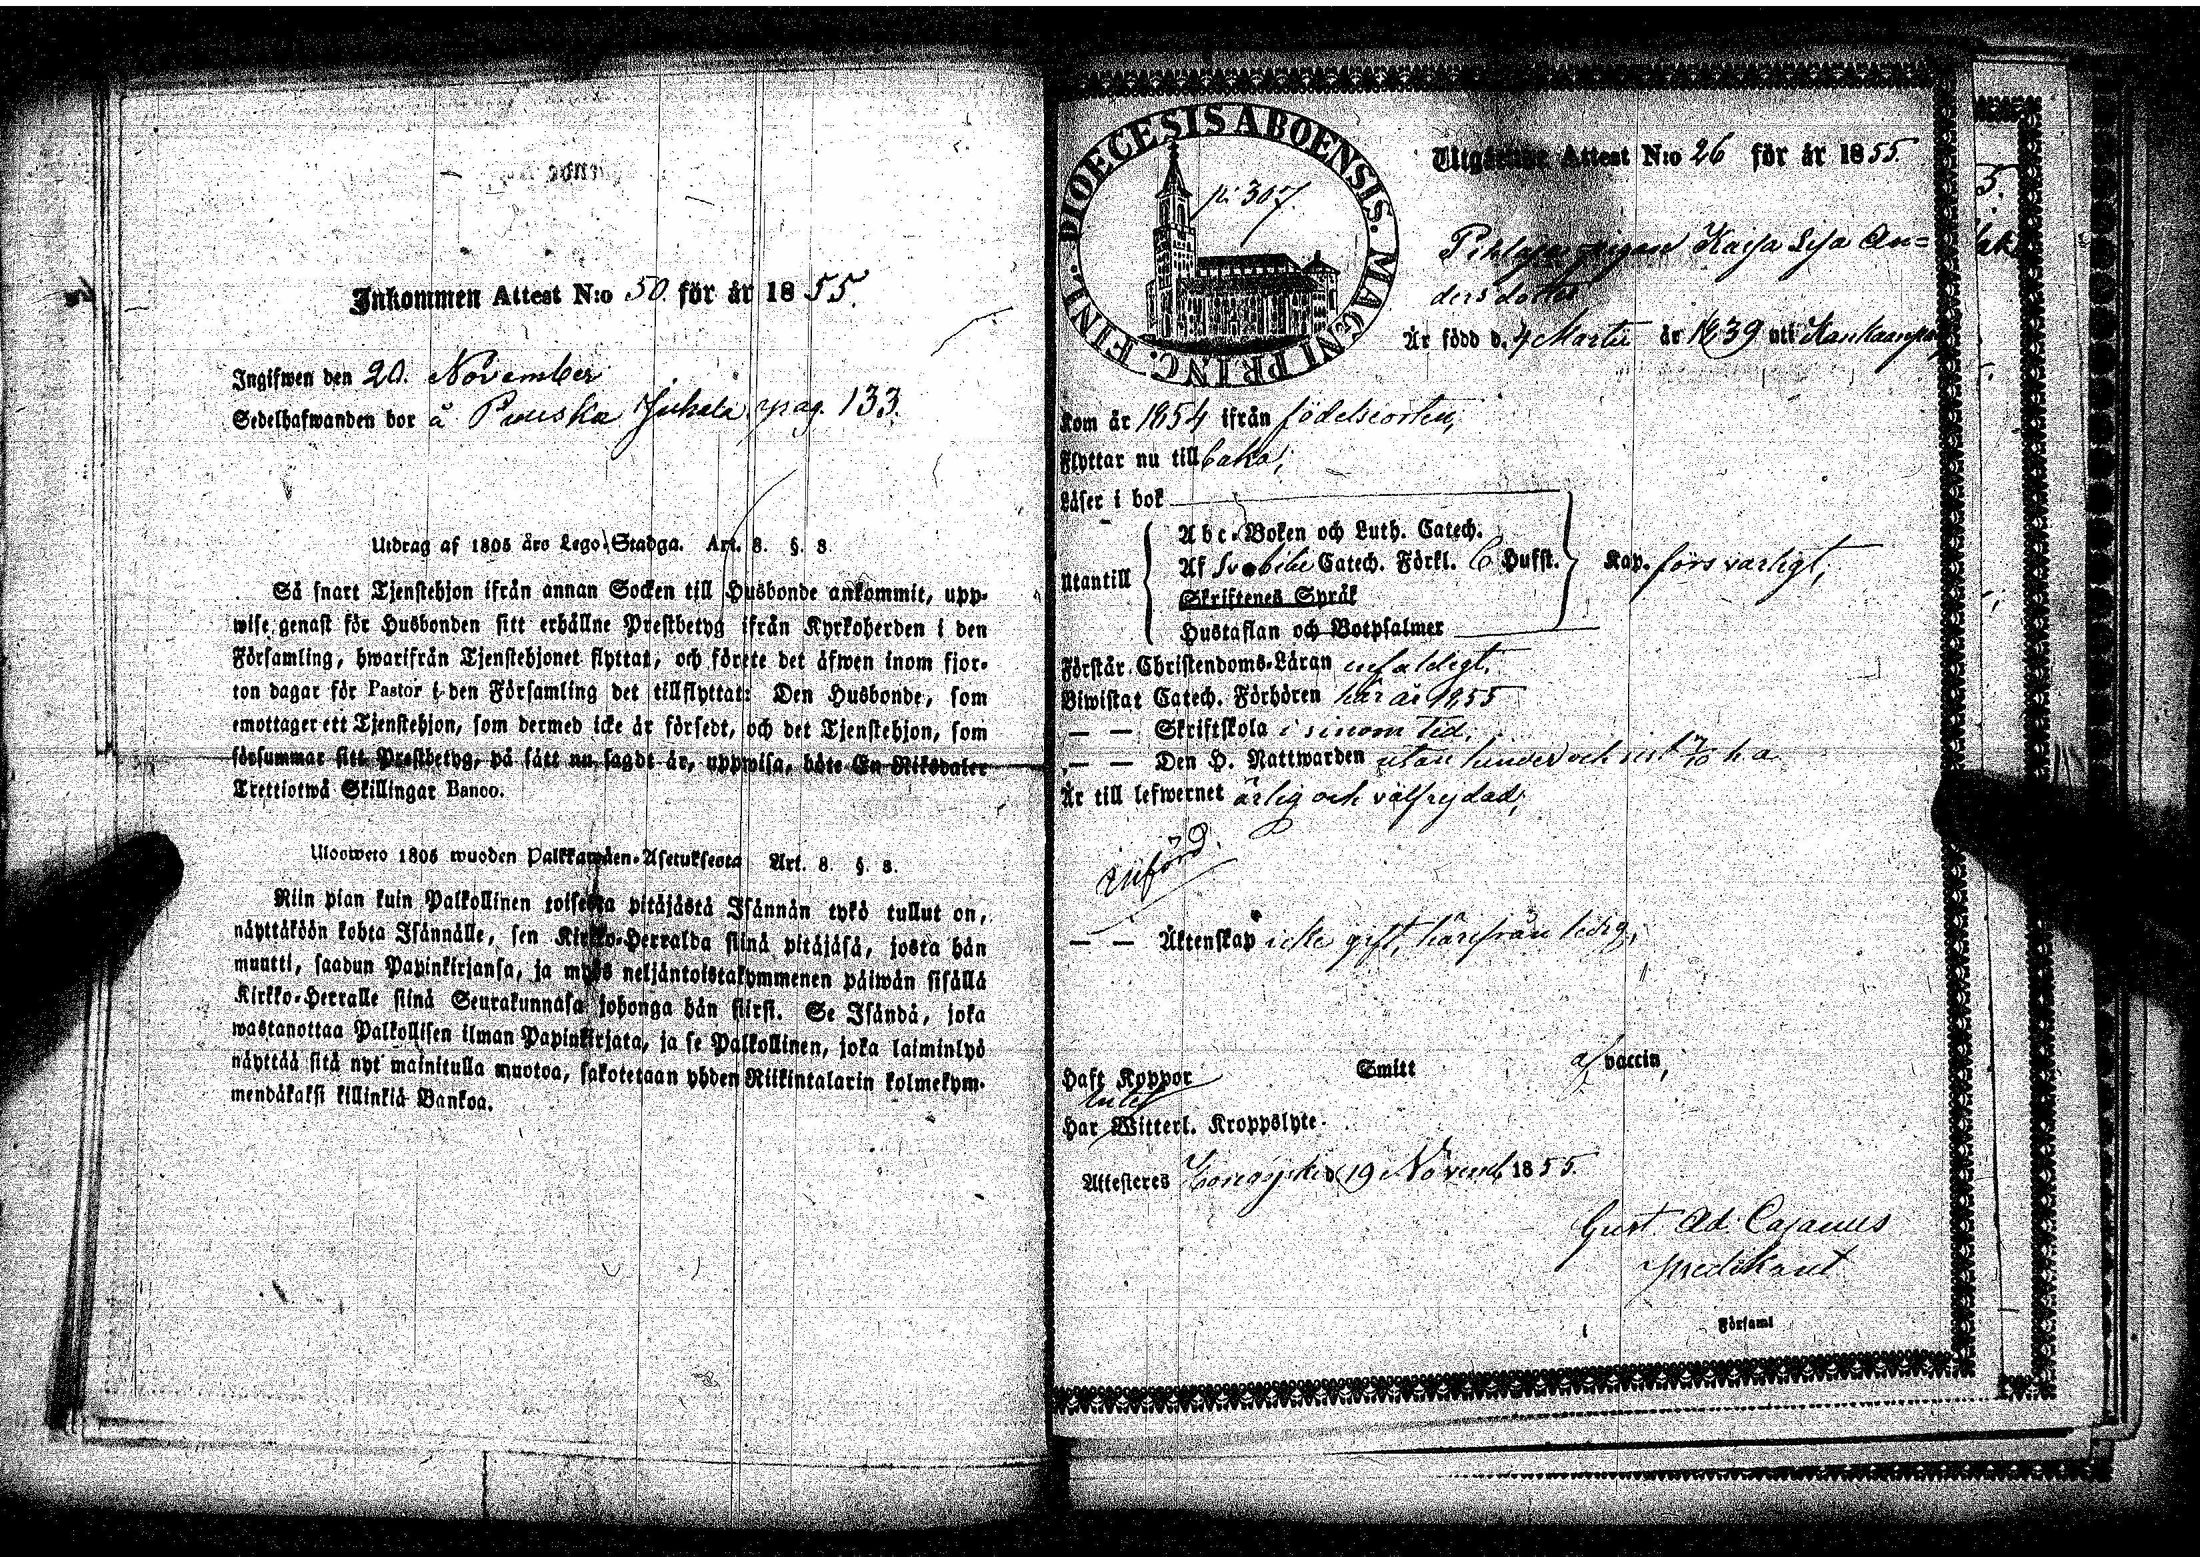 Inkommen Attest N:o 50. för år 1855.
Ingifwen den 20. November
Sedelhafwanden bor å Punska Juhala pag. 133.
Utdrag af 1805 års Lego-Stadga. Art. 8. §. 3.
Så snart Tjenstehjon ifrån annan Socken till Husbonde ankommit, upp-
wise genast för Husbonden sitt erhållne Prestbetyg ifrån Kyrkoherden i den
Församling, hwarifrån Tjenstehjonet flyttat, och förete det äfwen inom fjor-
ton dagar för Pastor i den Församling det tillflyttat: Den Husbonde, som
emottager ett Tjenstehjon, som dermed icke är försedt, och det Tjenstehjon, som
försummar sitt Prestbetyg, på sätt nu sagdt är, uppwisa, böte En Riksdaler
Trettiotwå Skillingar Banco.
Ulosweto 1805 wuoden Palkkawäen-Asetuksesta Art. 8. §. 3.
Niin pian kuin Palkollinen toisesta pitäjästä Isännän tykö tullut on,
näyttäköön kohta Isännälle, sen Kirkko-Herralda siinä pitäjäsä, josta hän
muutti, saadun Papinkirjansa, ja myös neljäntoistakymmenen päiwän sisällä
Kirkko-Herralle siinä Seurakunnasa johonga hän siirsi. Se Isändä, joka
wastanottaa Palkollisen ilman Papinkirjata, ja se Palkollinen, joka laiminlyö
näyttää sitä nyt mainitulla muotoa, sakotetaan yhden Riikintalarin kolmekym-
mendäkaksi killinkiä Bankoa.
DIOECESIS ABOENSIS. MAGNI PRINC. FINL.
p. 307.
Utgående Attest N:o 26 för år 1855.
Pihlaja pigan Kaisa Lisa An-
dersdotter
Är född d. 4 Martii år 1839 uti Kankaanpää
Kom år 1854 ifrån födelseorten,
Flyttar nu tillbaka,
Läser i bok
Utantill
Abc-Boken och Luth. Catech.
Af Svebilii Catech. Förkl. 6 Hufst.
Skriftenes Språk
Hustaflan och Botpsalmer
Kap. försvarligt,
Förstår Christendoms-Läran enfaldigt.
Biwistat Catech. Förhören här år 1855
— — Skriftskola i sinom tid,
— — Den H. Nattwarden utan hinder och sist 7/10 h. a.
Är till lefwernet ärlig och välfrejdad,
Införd.
— — Äktenskap icke gift, härifrån ledig,
Haft Koppor Smitt af vaccin,
intet
Har Witterl. Kroppslyte.
Attesteres Honajoki d. 19 Novemb. 1855
Gust. Ad. Cajanus
predikant
i Församl